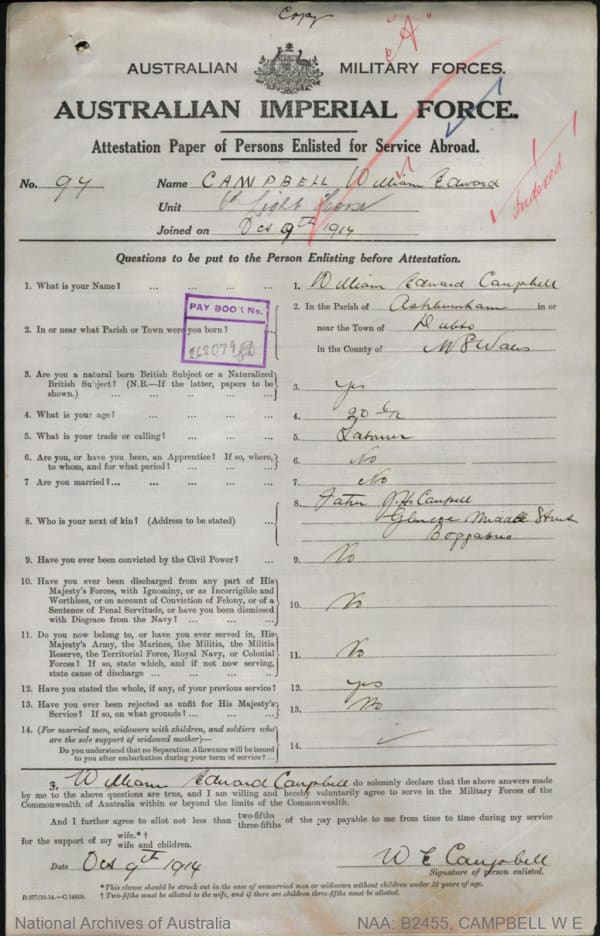 Copy
"A"
AUSTRALIAN MILITARY FORCES.
AUSTRALIAN IMPERIAL FORCE.
Attestation Paper of Persons Enlisted for Service Abroad.
Indexed
No. 94 Name CAMPBELL William Edward
Unit 6th Light Horse
Joined on Oct 9th 1914
Questions to be put to the Person Enlisting before Attestation.
1. What is your Name? ... ... ... 1. William Edward Campbell
2. In or near what Parish or Town were you born? ... 2. In the Parish of Ashburnham in or
near the Town of Dubbo
in the County of N S Wales
PAY BOOK No.
3. Are you a natural born British Subject or a Naturalized
British Subject? (N.B.—If the latter, papers to be
shown.) ... ... ... ... 3. yes
4. What is your age? ... ... ... 4. 20 6/12
5. What is your trade or calling? ... ... 5. Labourer
6. Are you, or have you been, an Apprentice? If so, where,
to whom, and for what period? ... ... 6. No
7 Are you married?... ... ... ... 7. No
8. Who is your next of kin? (Address to be stated) ... 8. Father Campbell
Glencoe Middle Street
Boggabri
9. Have you ever been convicted by the Civil Power? ... 9. No
10. Have you ever been discharged from any part of His
Majesty's Forces, with Ignominy, or as Incorrigible and
Worthless, or on account of Conviction of Felony, or of a
Sentence of Penal Servitude, or have you been dismissed
with Disgrace from the Navy? ... ... ... 10. No
11. Do you now belong to, or have you ever served in, His
Majesty's Army, the Marines, the Militia, the Militia
Reserve, the Territorial Force, Royal Navy, or Colonial
Forces? If so, state which, and if not now serving,
state cause of discharge ... ... ... 11. No
12. Have you stated the whole, if any, of your previous service? 12. yes
13. Have you ever been rejected as unfit for His Majesty's
Service? If so, on what grounds? ... ... 13. No
14. (For married men, widowers with children, and soldiers who
are the sole support of widowed mother)—
Do you understand that no Separation Allowance will be issued
to you after embarkation during your term of service? ... 14.
3, William Edward Campbell do solemnly declare that the above answers made
by me to the above questions are true, and I am willing and hereby voluntarily agree to serve in the Military Forces of the
Commonwealth of Australia within or beyond the limits of the Commonwealth.
And I further agree to allot not less than two-fifths three-fifths of the pay payable to me from time to time during my service
for the support of my wife.*† wife and children.
Date Oct 9th 1914 W E Campbell
Signature of person enlisted.
* This clause should be struck out in the case of unmarried men or widowers without children under 18 years of age.
† Two-fifths must be allotted to the wife, and if there are children three-fifths must be allotted.
National Archives of Australia NAA: B2455, CAMPBELL W E